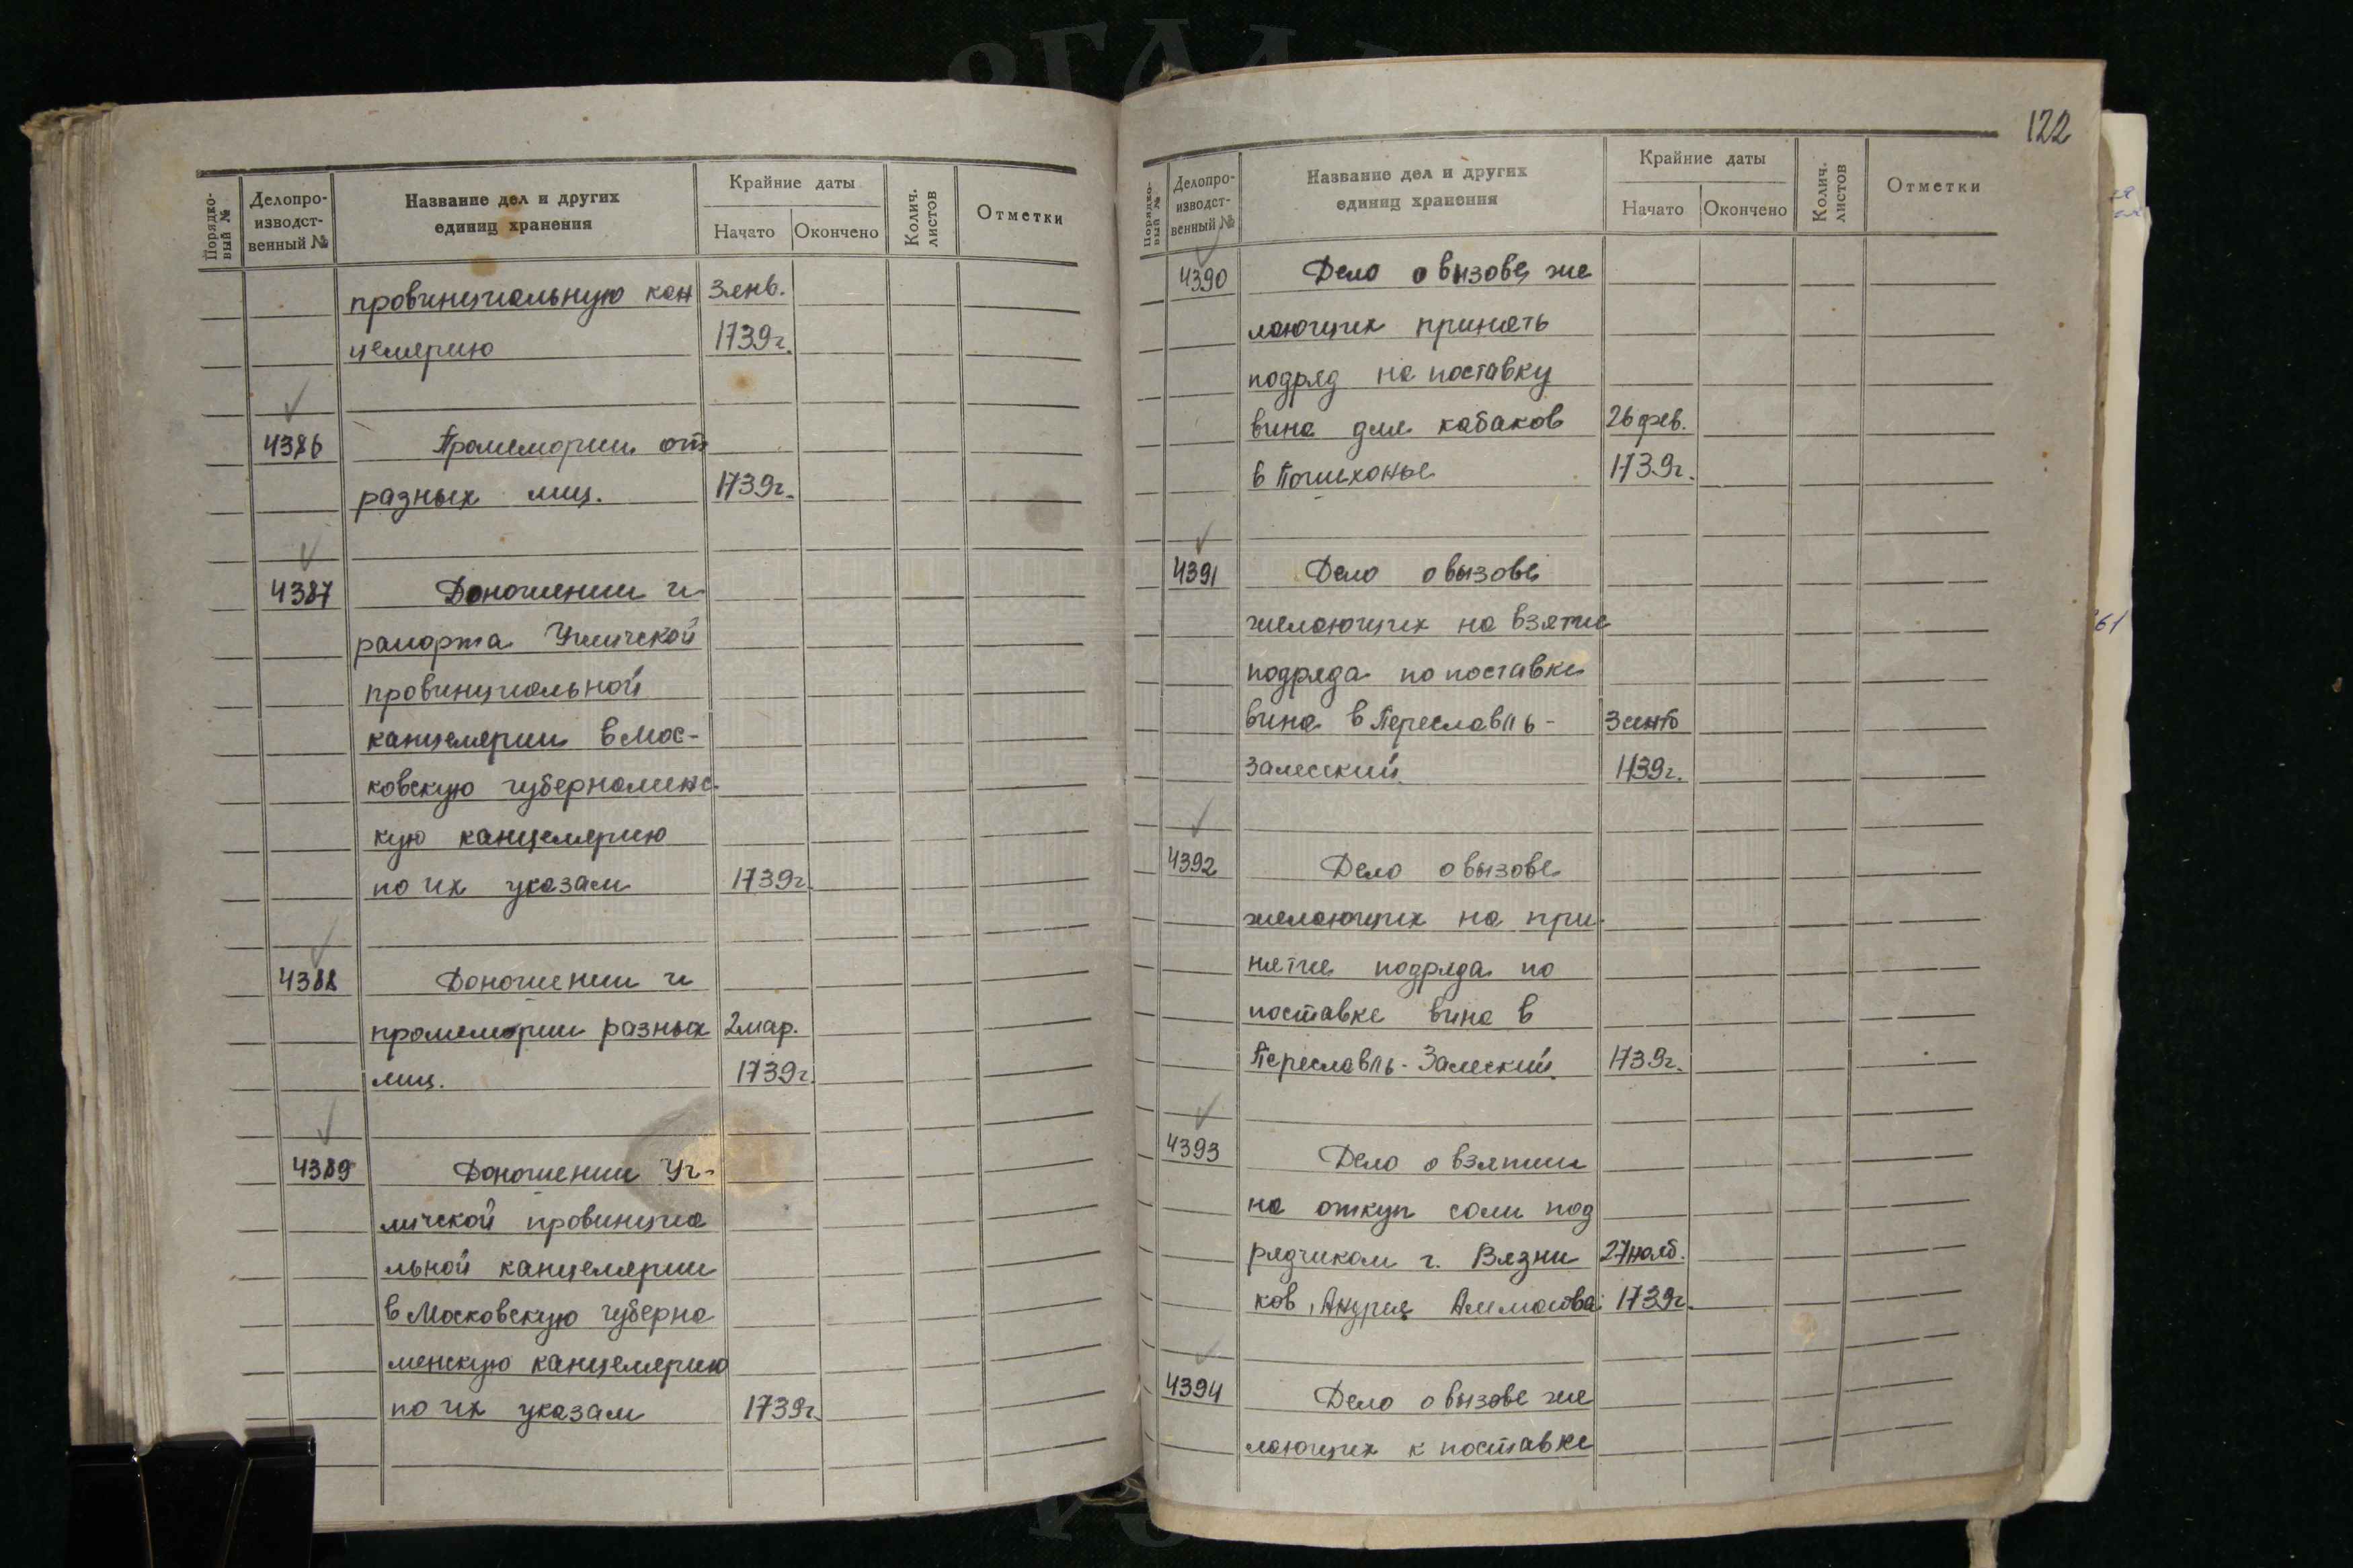 Порядко-
вый №
Делопро-
изводст-
венный №
Название дел и других
единиц хранения
Крайние даты
Начато
Окончено
Колич.
листов
Отметки
провинциальную кан 3 янв.
целярию 1739г.
4386 Промемории от
разных лиц. 1739г.
4387 Доношении и
рапорта Угличской
провинциальной
канцелярии в Мос-
ковскую губернаменс-
кую канцелярию
по их указам 1739г.
4388 Доношении и
промемории разных 2 мар.
лиц. 1739г.
4389 Доношении Уг-
личской провинциа
льной канцелярии
в Московскую губерна
менскую канцелярию
по их указам 1739г.
122
Порядко-
вый №
Делопро-
изводст-
венный №
Название дел и других
единиц хранения
Крайние даты
Начато
Окончено
Колич.
листов
Отметки
4390 Дело о вызове же
лающих принять
подряд на поставку
вина для кабаков 26 фев.
в Пошехонье 1739г.
4391 Дело о вызове
желающих на взятие
подряда по поставке
вина в Переславль-
Залесский 1739г.
4392 Дело о вызове
желающих на при
нятие подряда по
поставке вина в
Переславль-Залеский 1739г.
4393 Дело о взятии
на откуп соли под
рядчиком г. Вязни 27 нояб.
ков, Андрея 1739г.
4394 Дело о вызове же
лающих к поставке
61